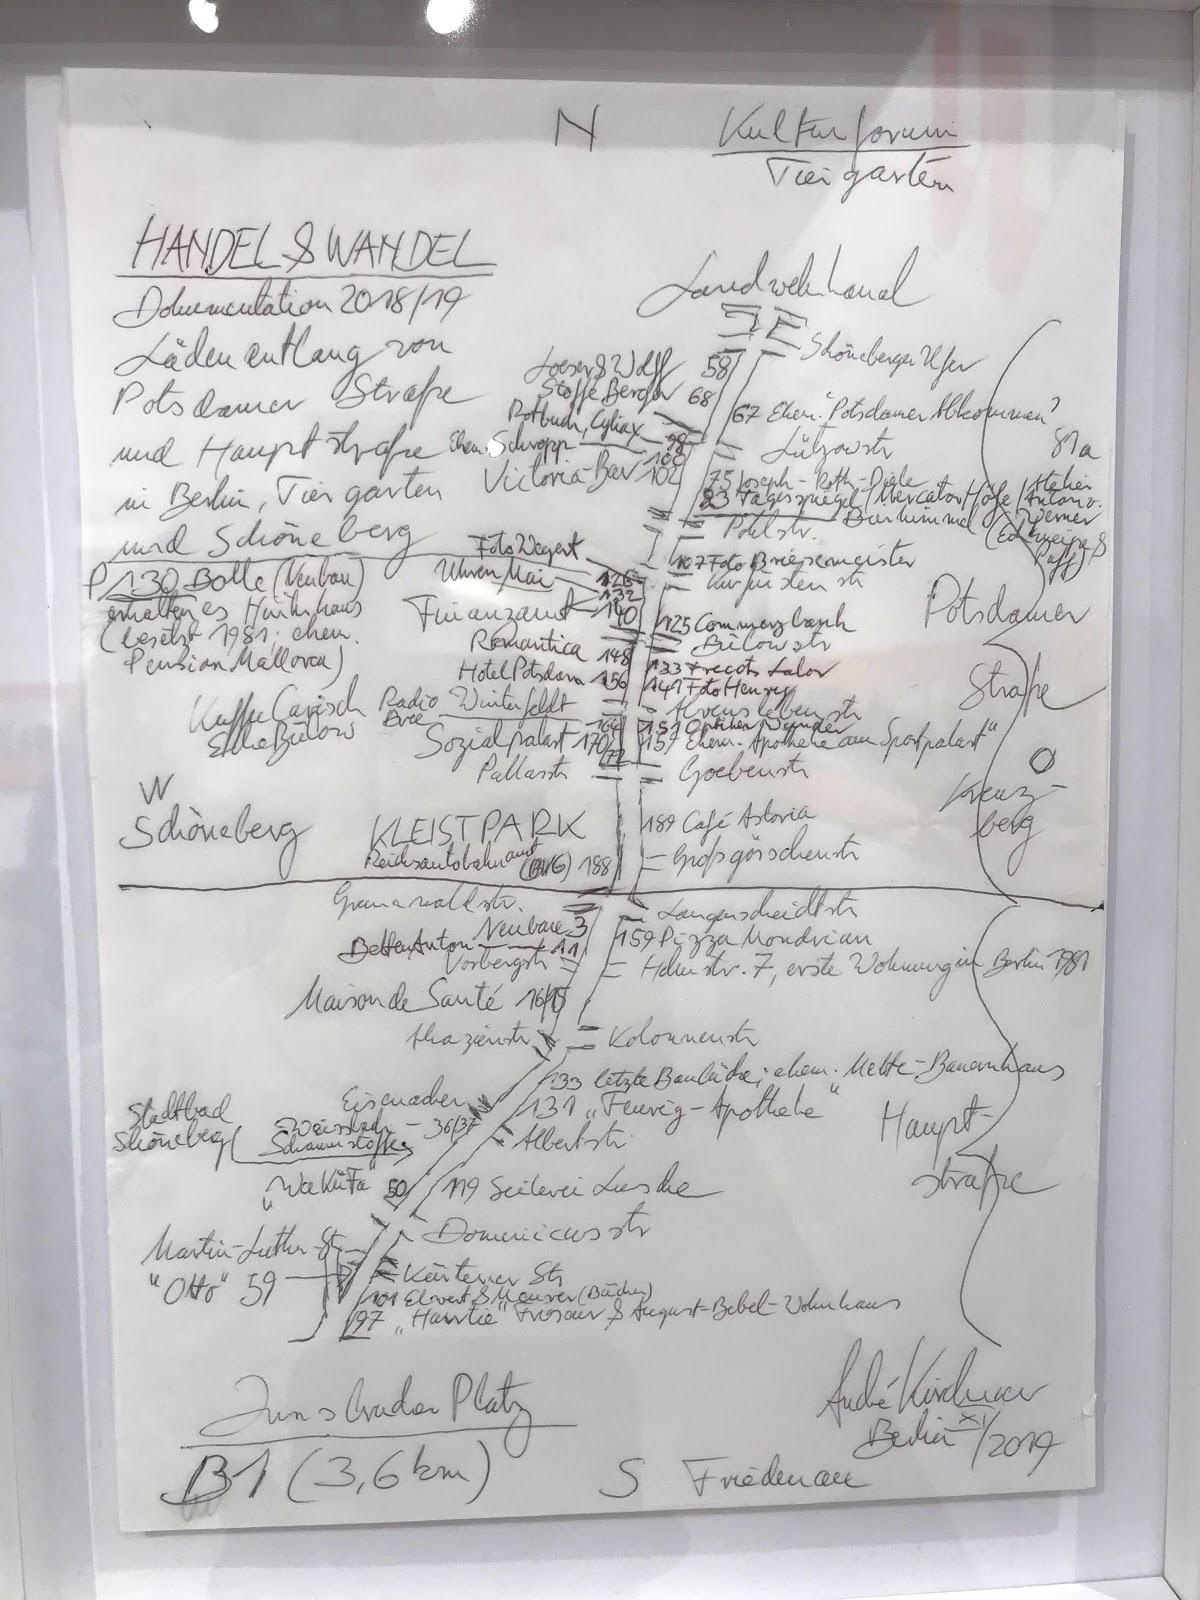 N
Kulturforum
Tiergarten
HANDEL & WANDEL
Dokumentation 2018/19
Läden entlang von
Potsdamer Straße
und Hauptstraße
in Berlin, Tiergarten
und Schöneberg
P 130 Bolle (Neubau)
erhaltenes Hinterhaus
(besetzt 1981; ehem.
Pension Mallorca)
Landwehrkanal
Schöneberger Ufer
Loeser & Wolff 58
Stoffe Berger 68
67 Ehem. "Potsdamer Abkommen"
Rotbuch, Cyliax 98
Lützowstr
81a
Ehem. Schropp 100
Victoria-Bar 102
75 Joseph-Roth-Diele
83 Tagesspiegel/Mercator Höfe/
Atelier
Anton v.
Werner
Bierhimmel
(Eckkneipe &
Puff)
Pohlstr.
Foto Wegert 126
107 Foto Briesemeister
Uhren Mai 132
Kurfürstenstr
Finanzamt 140
125 Commerzbank
Bülowstr
Romantica 148
133 Frecots Labor
Hotel Potsdam 156
141 Foto Henrey
Alvenslebenstr
Potsdamer
Straße
Kaffee Carisch
Ecke Bülow
Radio
Bree
Winterfeldt
164
151 Optiker Wunder
Sozialpalast 170/72
157 Ehem. "Apotheke am Sportpalast"
Pallasstr
Goebenstr
O
Kreuz-
berg
W
Schöneberg
KLEISTPARK
189 Café Astoria
Reichsautobahnamt (BVG) 188
Großgörschenstr
Grunewaldstr.
Langenscheidtstr
Neubau 3
Betten Anton 11
159 Pizza Mondrian
Vorbergstr
Hohenstr. 7, erste Wohnung in Berlin 1981
Maison de Santé 16/15
Akazienstr
Kolonnenstr
133 letzte Baulücke; ehem. Mette-Bauernhaus
131 „Feurig-Apotheke"
Eisenacher
Stadtbad
Schöneberg
36/37
Schaumstoffe
Albertstr.
Haupt-
straße
„WeKüFa" 50
119 Seilerei Lusche
Dominicusstr
Martin-Luther-Str
"Otto" 59
Kärtener Str
101 Ebvert & Meurer (Bücher)
97 „Hawtie" Friseur & August-Bebel-Wohnhaus
Innsbrucker Platz
B1 (3,6 km)
S Friedenau
André Kirchner
Berlin XI/2019